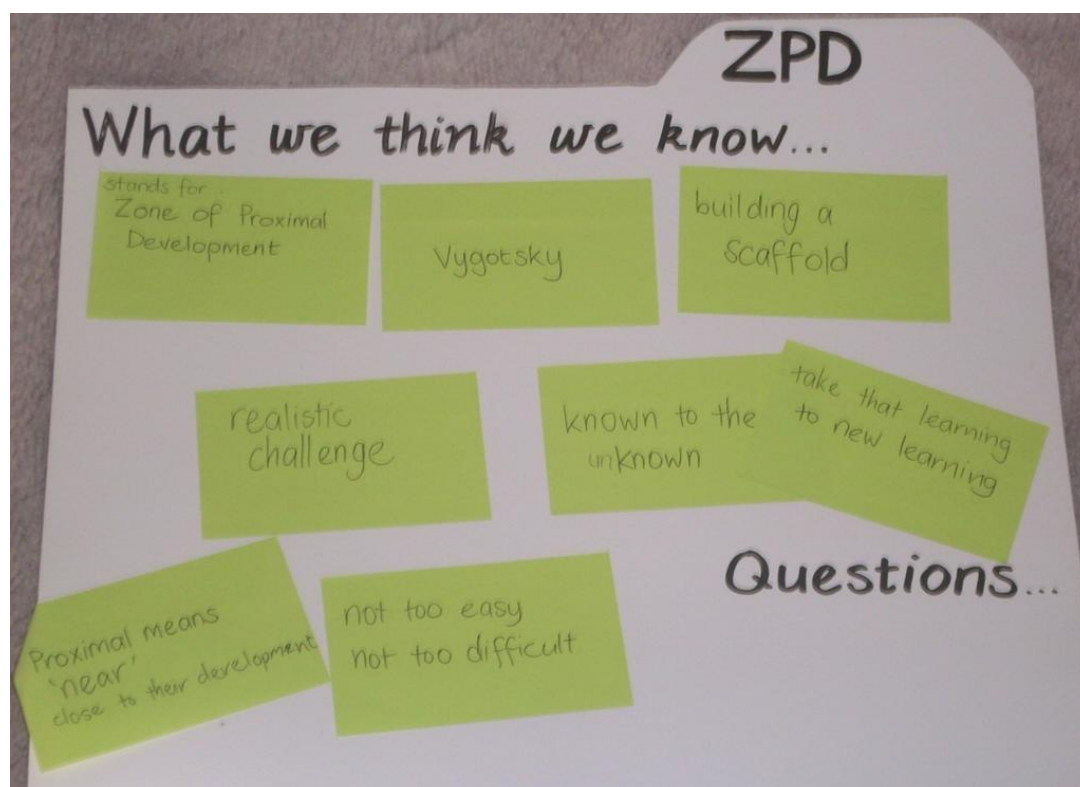 ZPD
What we think we know...
stands for
Zone of Proximal
Development
Vygotsky
building a
scaffold
realistic
challenge
known to the
unknown
take that learning
to new learning
Proximal means
'near'
close to their development
not too easy
not too difficult
Questions...